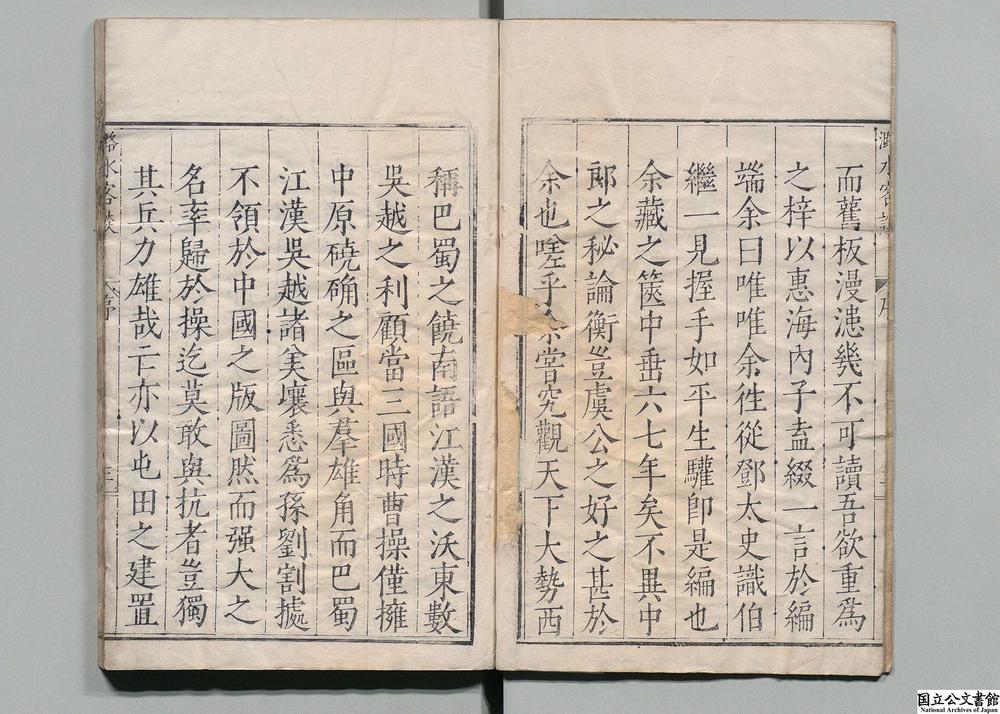 而舊板漫漶幾不可讀吾欲重爲
之梓以惠海內子盍綴一言於編
端余曰唯唯余徃從鄧太史識伯
繼一見握手如平生驩卽是編也
余藏之篋中垂六七年矣不異中
郎之秘論衡豈虞公之好之甚於
余也嗟乎余嘗究觀天下大勢西
稱巴蜀之饒南語江漢之沃東數
吳越之利顧當三國時曹操僅擁
中原磽确之區與羣雄角而巴蜀
江漢吳越諸美壤悉爲孫劉割據
不領於中國之版圖然而强大之
名率歸於操迄莫敢與抗者豈獨
其兵力雄哉亡亦以屯田之建置
潞水客談
序
潞水客談
序
三
国立公文書館
National Archives of Japan